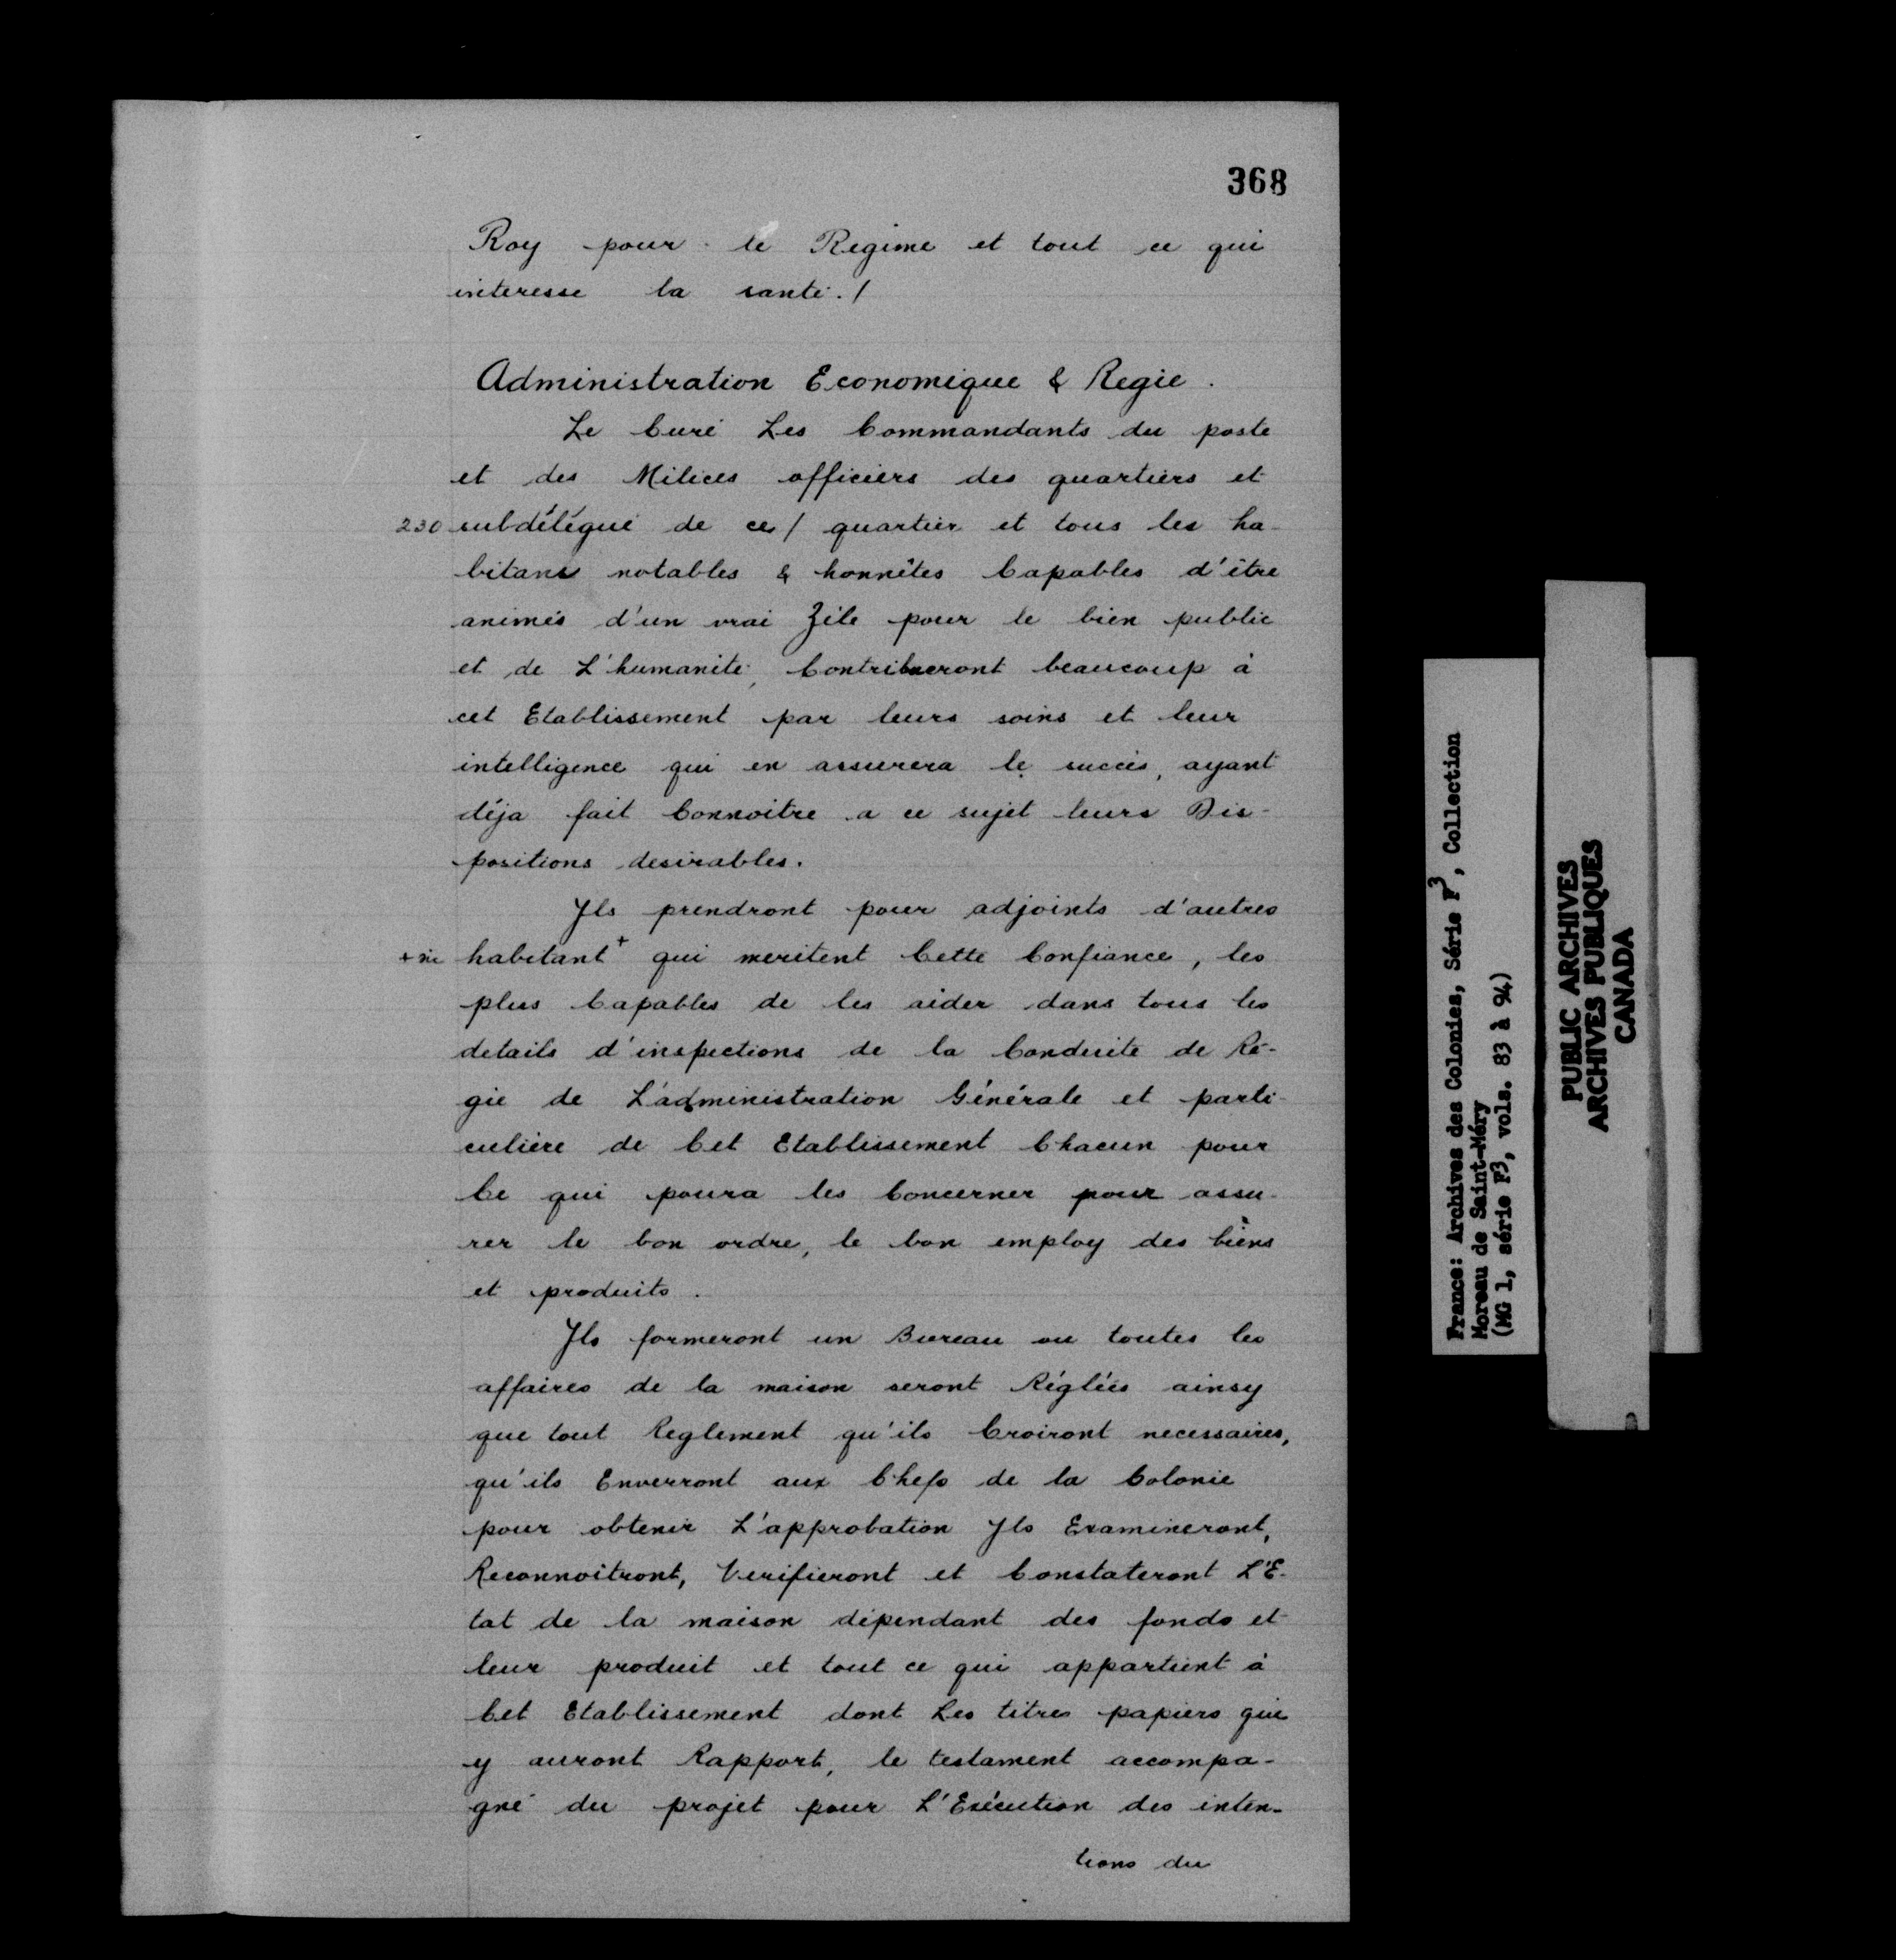 368
Roy pour le Regime et tout ce qui
interesse la santé./
Administration Economique & Regie.
Le Curé Les Commandants du poste
et des Milices officiers des quartiers et
230 subdélégué de ce/ quartier et tous les ha-
bitans notables & honnêtes Capables d'être
animés d'un vrai Zéle pour le bien public
et de L'humanité, Contribueront beaucoup à
cet Etablissement par leurs soins et leur
intelligence qui en assurera le succès, ayant
déja fait Connoitre a ce sujet leurs Dis-
positions desirables.
Yls prendront pour adjoints d'autres
+ sic habitant+ qui meritent Cette Confiance, les
plus Capables de les aider dans tous les
details d'inspections de la Conduite de Ré-
gie de L'administration Générale et parti-
culière de Cet Etablissement Chacun pour
Ce qui poura les Concerner pour assu-
rer le bon ordre, le bon employ des biens
et produits.
Yls formeront un Bureau ou toutes les
affaires de la maison seront Réglées ainsy
que tout Reglement qu'ils Croiront necessaires,
qu'ils Enverront aux Chefs de la Colonie
pour obtenir L'approbation Yls Examineront,
Reconnoîtront, Verifieront et Constateront L'E-
tat de la maison dépendant des fonds et
leur produit et tout ce qui appartient à
Cet Etablissement dont Les titres papiers qui
y auront Rapport, le testament accompa-
gné du projet pour L'Exécution des inten-
tions du
France: Archives des Colonies, Série F3, Collection
Moreau de Saint-Méry
(MG 1, série F3, vols. 83 à 94)
PUBLIC ARCHIVES
ARCHIVES PUBLIQUES
CANADA